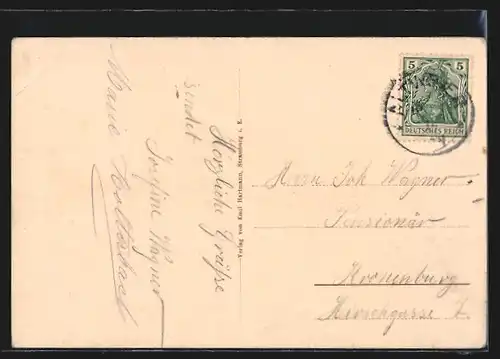 Herzliche Grüsse
sendet
Josefine Wagner
Marie
Verlag von Emil Hartmann, Strassburg i. E.
5 5
DEUTSCHES REICH
Herrn Joh Wagner
Pensionär
Kronenburg
Hirschgasse